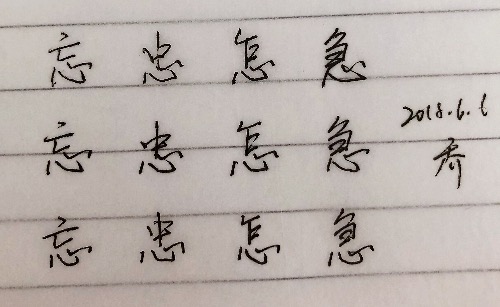 忘 忠 怎 急
2018.6.6
忘 忠 怎 急 乔
忘 忠 怎 急